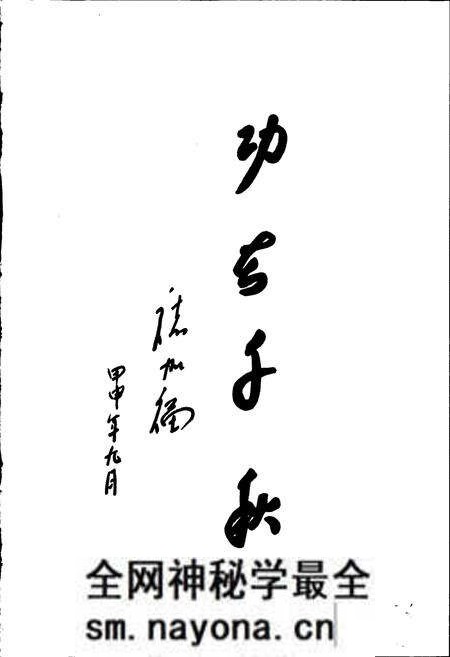 功千秋
加
甲申年九月
全网神秘学最全
sm.nayona.cn